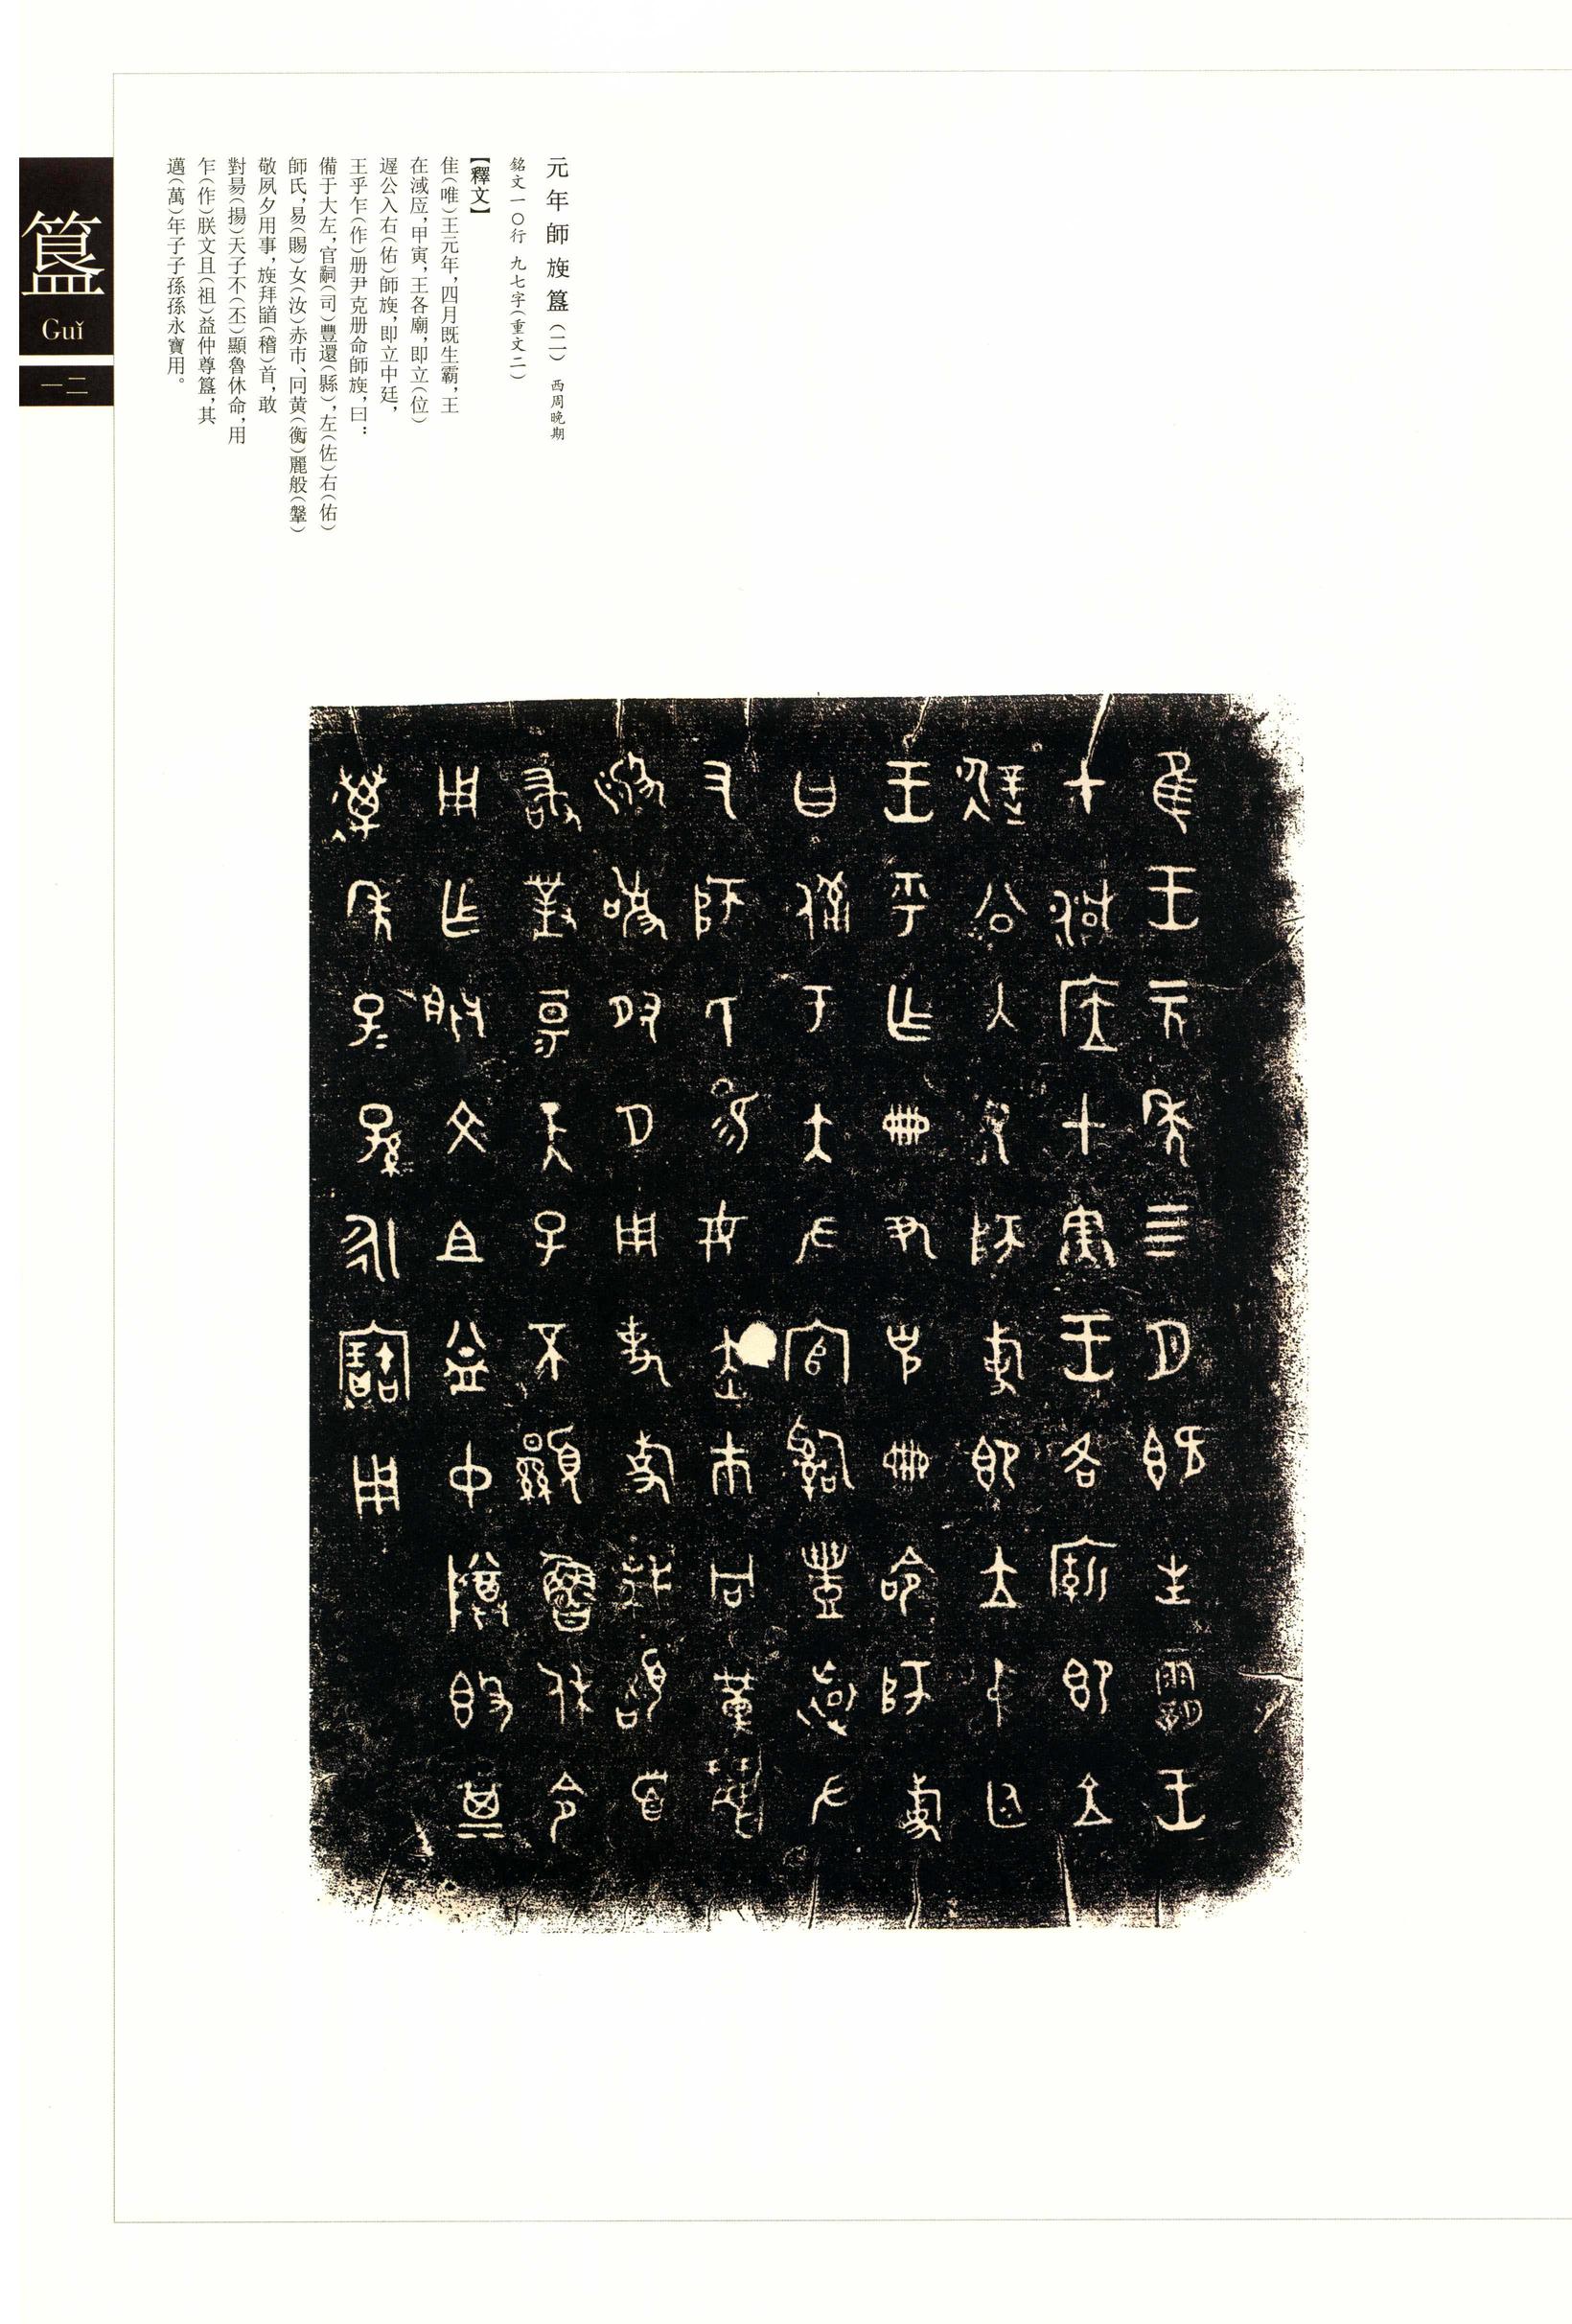 元年師旋簋(二) 西周晚期
銘文一〇行 九七字(重文二)
【釋文】
隹(唯)王元年,四月既生霸,王
在淢㡴,甲寅,王各廟,即立(位)
遟公入右(佑)師旋,即立中廷,
王乎乍(作)册尹克册命師旋,曰:
備于大左,官嗣(司)豐還(縣),左(佐)右(佑)
師氏,易(賜)女(汝)赤市、冋黄(衡)麗般(鞶)
敬夙夕用事,旋拜䭫(稽)首,敢
對昜(揚)天子不(丕)顯魯休命,用
乍(作)朕文且(祖)益仲尊簋,其
邁(萬)年子子孫孫永寶用。
簋
Guǐ
一二